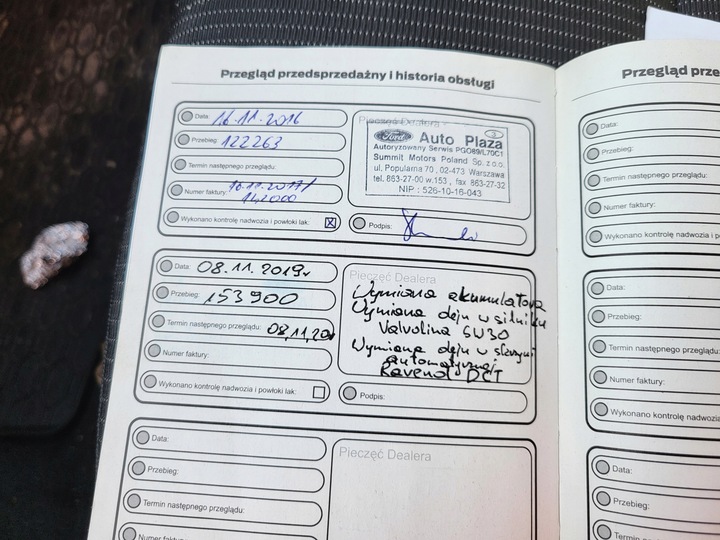 Przegląd przedsprzedażny i historia obsługi
Data: 16.11.2016
Przebieg: 122263
Termin następnego przeglądu:
Numer faktury: 16.11.2017/
142000
Wykonano kontrolę nadwozia i powłoki lak: X
Pieczęć Dealera
Ford Auto Plaza 3
Autoryzowany Serwis PGO89/L70C1
Summit Motors Poland Sp. z o.o.
ul. Popularna 70, 02-473 Warszawa
tel. 863-27-00 w.153, fax 863-27-32
NIP: 526-10-16-043
Podpis:
Data: 08.11.2019r
Przebieg: 153900
Termin następnego przeglądu: 08,11,20
Numer faktury:
Wykonano kontrolę nadwozia i powłoki lak:
Pieczęć Dealera
Wymiana akumulatora
Wymiana oleju w silniku
Valvolina 5W30
Wymiana oleju w skrzyni
automatycznej
Ravenol DCT
Podpis:
Data:
Przebieg:
Termin następnego przeglądu:
Numer faktury:
Pieczęć Dealera
Przegląd prze
Data:
Przebieg:
Termin następnego przeglądu:
Numer faktury:
Wykonano kontrolę nadwozia i p
Data:
Przebieg:
Termin następnego przeglądu:
Numer faktury:
Wykonano kontrolę nadwozia
Data:
Przebieg:
Termin następnego przeglądu:
Termin